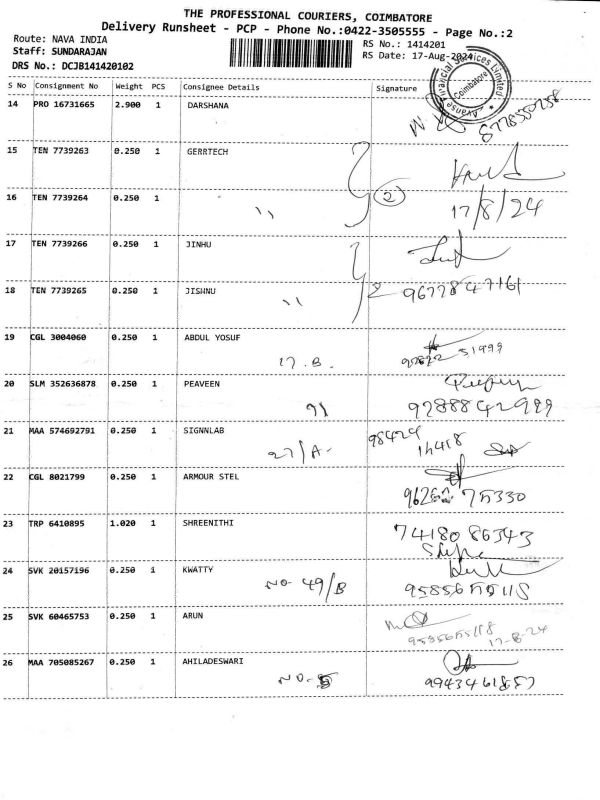 THE PROFESSIONAL COURIERS, COIMBATORE
Delivery Runsheet - PCP - Phone No.:0422-3505555 - Page No.:2
Route: NAVA INDIA
RS No.: 1414201
Staff: SUNDARAJAN
RS Date: 17-Aug-2024
DRS No.: DCJB141420102
S No Consignment No Weight PCS Consignee Details Signature
14 PRO 16731665 2.900 1 DARSHANA
15 TEN 7739263 0.250 1 GERRTECH
16 TEN 7739264 0.250 1 " 2 17/8/24
17 TEN 7739266 0.250 1 JINHU
18 TEN 7739265 0.250 1 JISHNU " 2
19 CGL 3004060 0.250 1 ABDUL YOSUF
17.B.
20 SLM 352636878 0.250 1 PEAVEEN
21 MAA 574692791 0.250 1 SIGNNLAB
27/A-
22 CGL 8021799 0.250 1 ARMOUR STEL
23 TRP 6410895 1.020 1 SHREENITHI
74180 86343
24 SVK 20157196 0.250 1 KWATTY
NO-49/B
25 SVK 60465753 0.250 1 ARUN
17-8-24
26 MAA 705085267 0.250 1 AHILADESWARI
NO-5